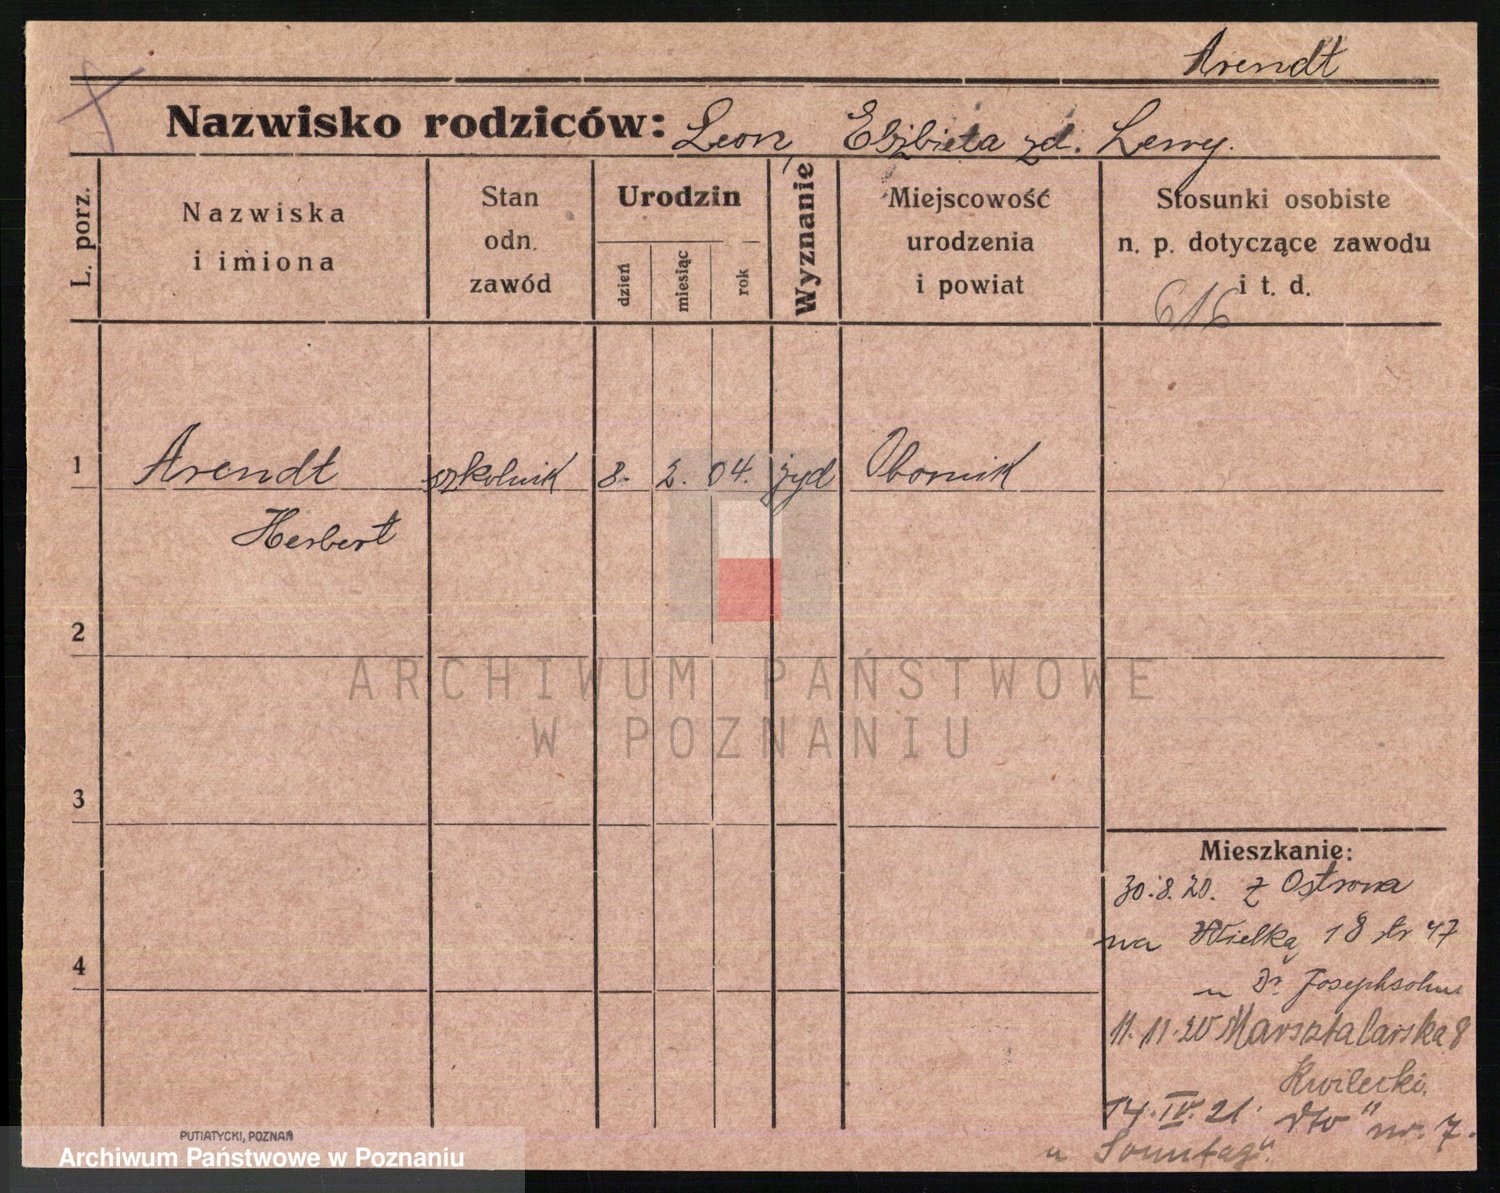 Arendt
Nazwisko rodziców: Leon, Elżbieta zd. Lewy.
L. porz.
Nazwiska
i imiona
Stan
odn.
zawód
Urodzin
dzień
miesiąc
rok
Wyznanie
Miejscowość
urodzenia
i powiat
Stosunki osobiste
n. p. dotyczące zawodu
i t. d.
616
1 Arendt szkolnik 8. 2. 04. żyd Obornik
Herbert
2
3
4
Mieszkanie:
30.8.20. z Ostrowa
na Wielką 18 str 47
u Dr. Josephsohna
11.11.20 Marsztalarska 8
Kwilecki.
14.IV.21. dto " nr. 7.
u Sonntag".
PUTIATYCKI, POZNAŃ
ARCHIWUM PAŃSTWOWE
W POZNANIU
Archiwum Państwowe w Poznaniu